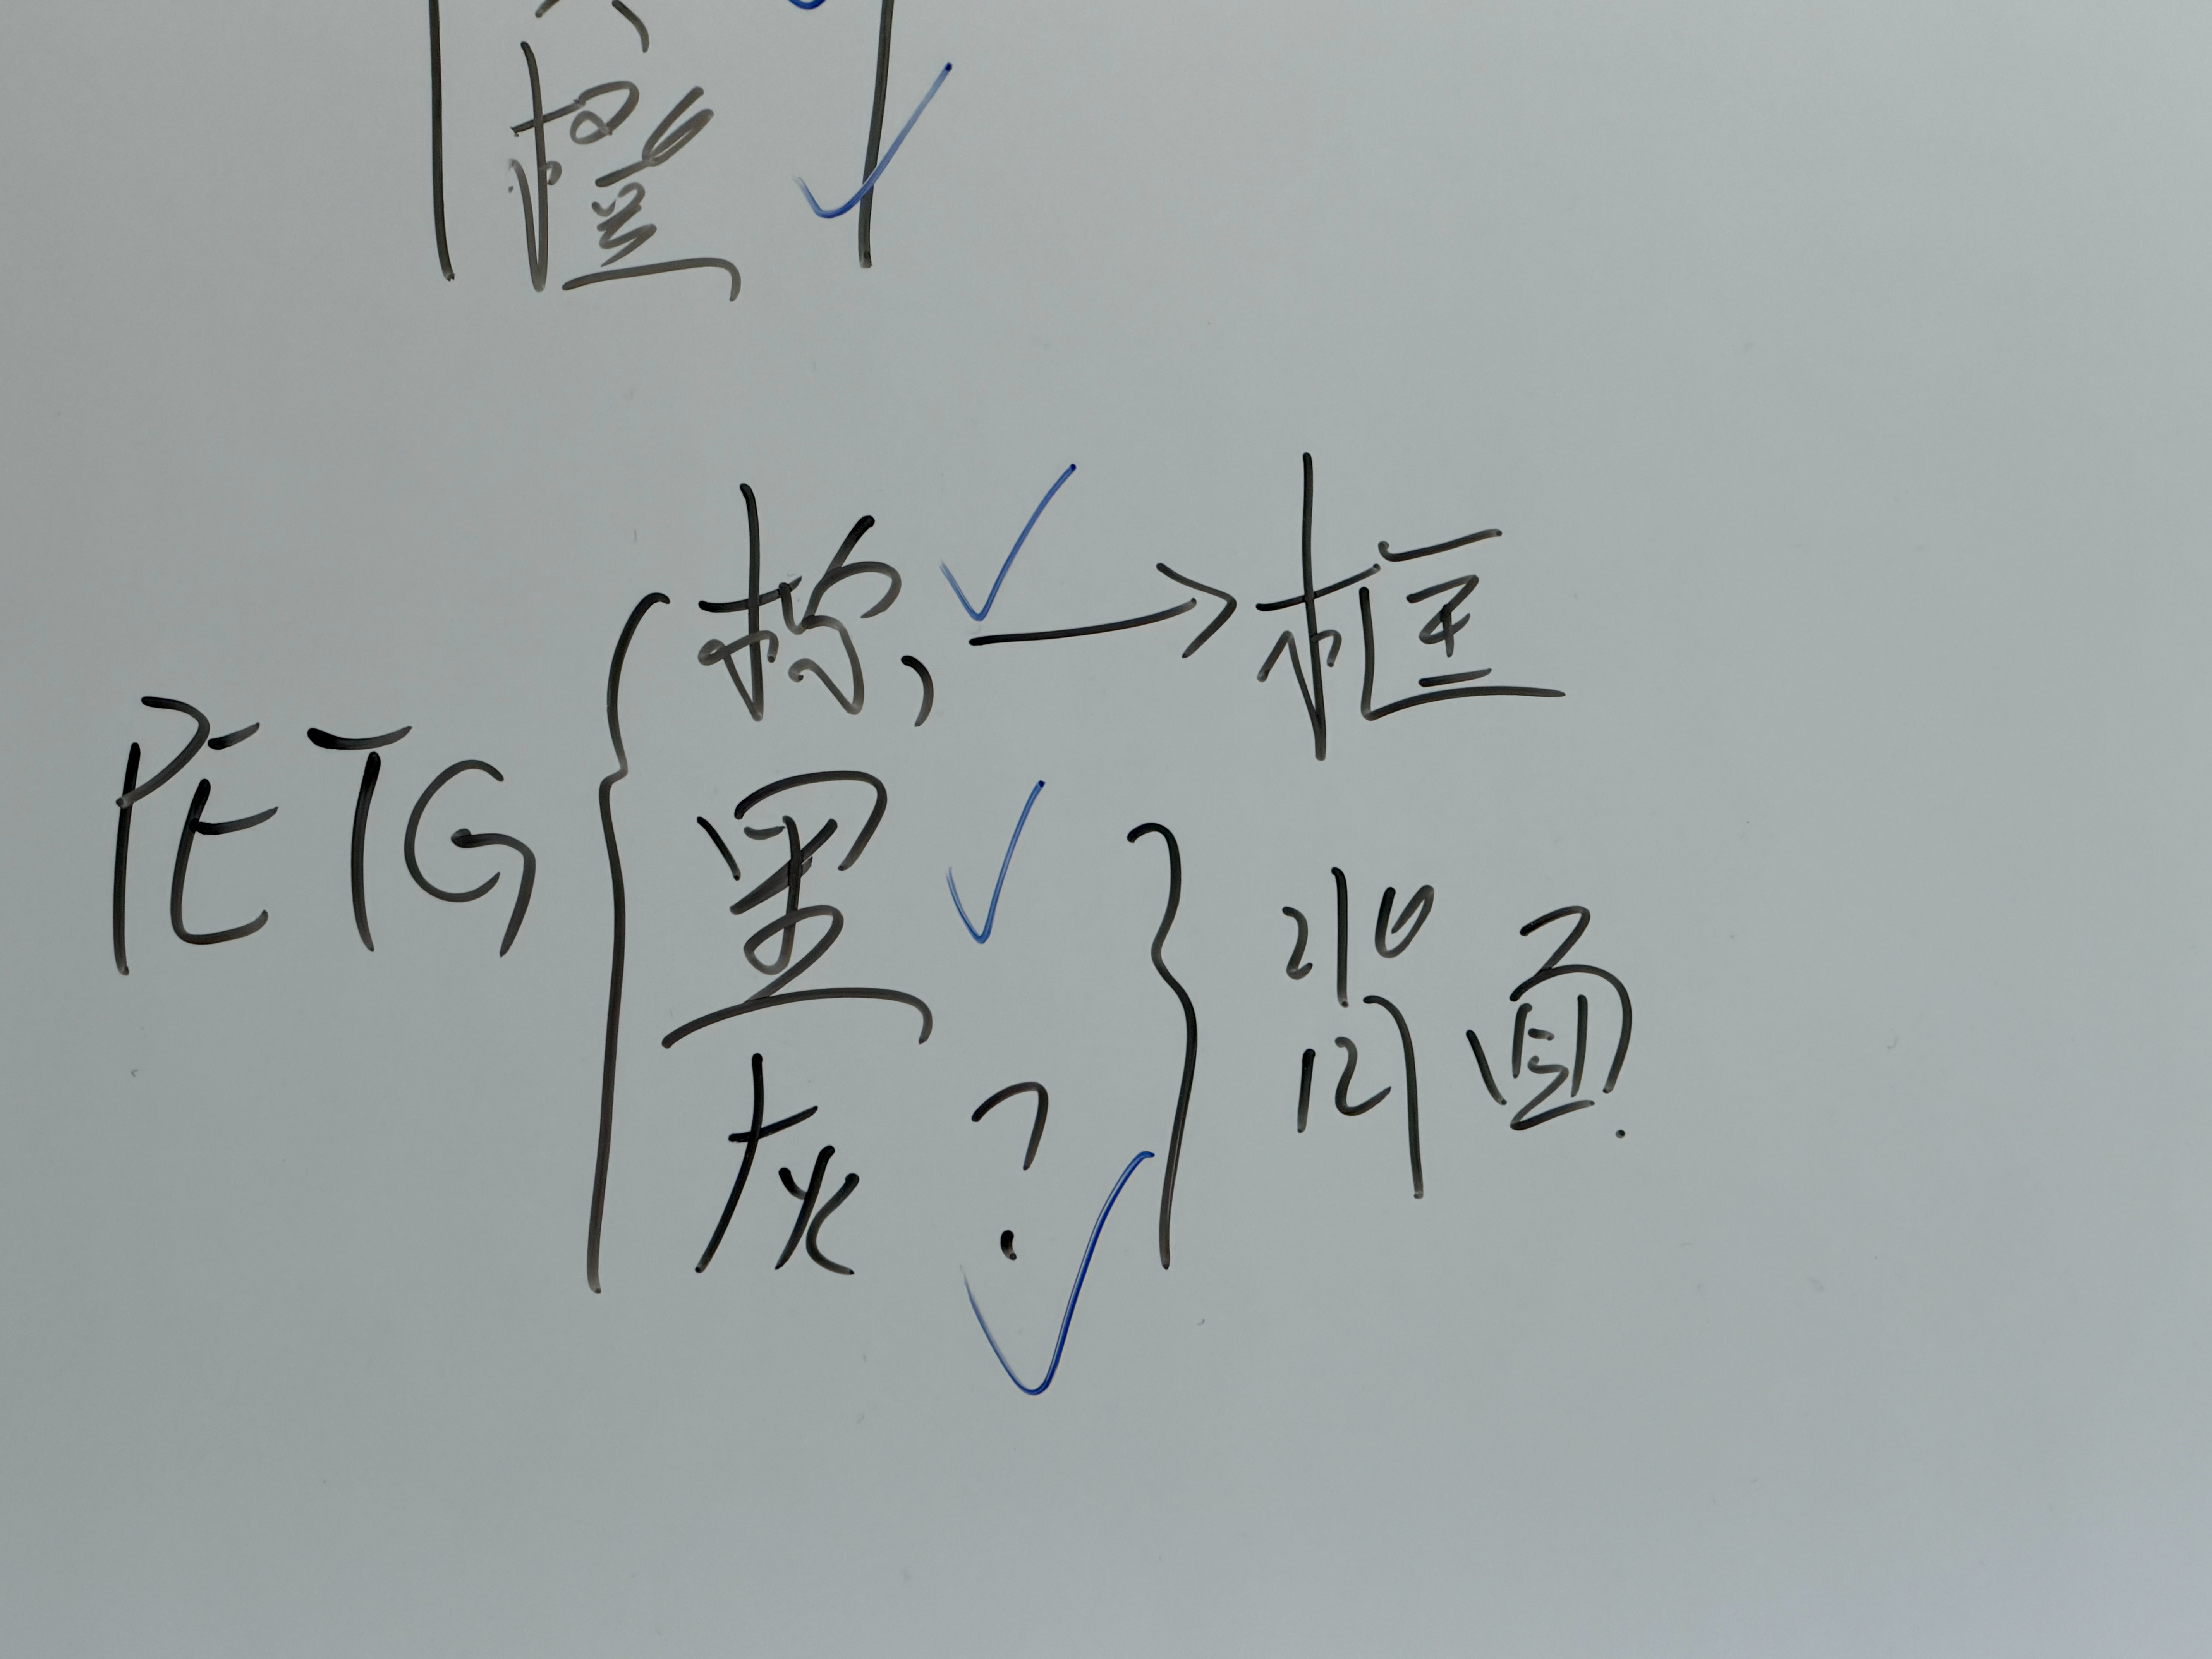 橙 ✓
PETG { ✓ → 框
黑 ✓
灰 ? ✓ } 背面.